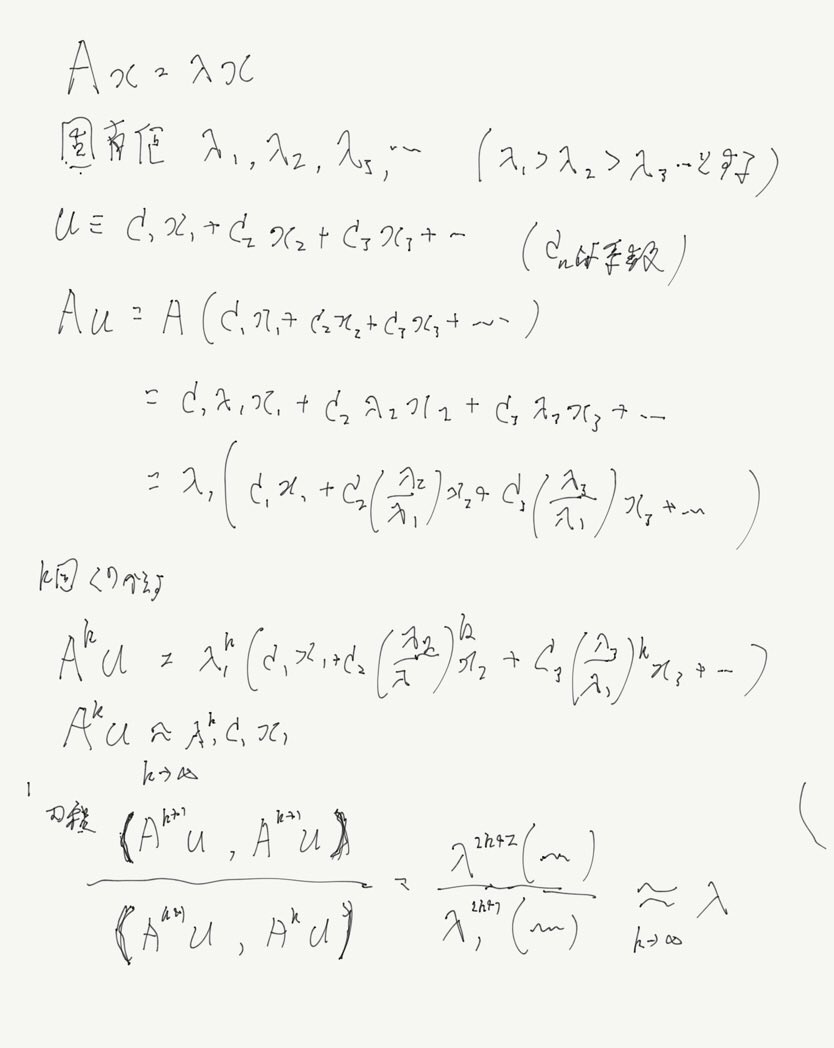 Ax = λx
固有値 λ₁, λ₂, λ₃, … (λ₁ > λ₂ > λ₃ … とする)
u ≡ C₁x₁ + C₂x₂ + C₃x₃ + … (Cₙは係数)
Au = A(C₁x₁ + C₂x₂ + C₃x₃ + …)
= C₁λ₁x₁ + C₂λ₂x₂ + C₃λ₃x₃ + …
= λ₁(C₁x₁ + C₂(λ₂/λ₁)x₂ + C₃(λ₃/λ₁)x₃ + …)
k回くりかえす
Aᵏu = λ₁ᵏ(C₁x₁ + C₂(λ₂/λ)ᵏx₂ + C₃(λ₃/λ₁)ᵏx₃ + …)
Aᵏu ≈ λ₁ᵏC₁x₁
k→∞
内積 (Aᵏ⁺¹u, Aᵏ⁺¹u) / (Aᵏ⁺¹u, Aᵏu) = λ²ᵏ⁺²(〜) / λ₁²ᵏ⁺¹(〜) ≈ λ
k→∞